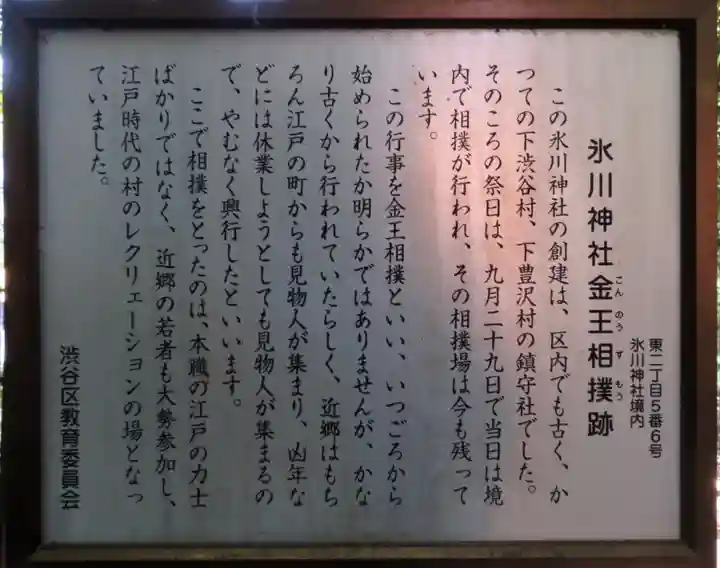 東二丁目5番6号
氷川神社境内
氷川神社金王相撲跡
こんのうずもう
この氷川神社の創建は、区内でも古く、か
つての下渋谷村、下豊沢村の鎮守社でした。
そのころの祭日は、九月二十九日で当日は境
内で相撲が行われ、その相撲場は今も残って
います。
この行事を金王相撲といい、いつごろから
始められたか明らかではありませんが、かな
り古くから行われていたらしく、近郷はもち
ろん江戸の町からも見物人が集まり、凶年な
どには休業しようとしても見物人が集まるの
で、やむなく興行したといいます。
ここで相撲をとったのは、本職の江戸の力士
ばかりではなく、近郷の若者も大勢参加し、
江戸時代の村のレクリェーションの場となっ
ていました。
渋谷区教育委員会